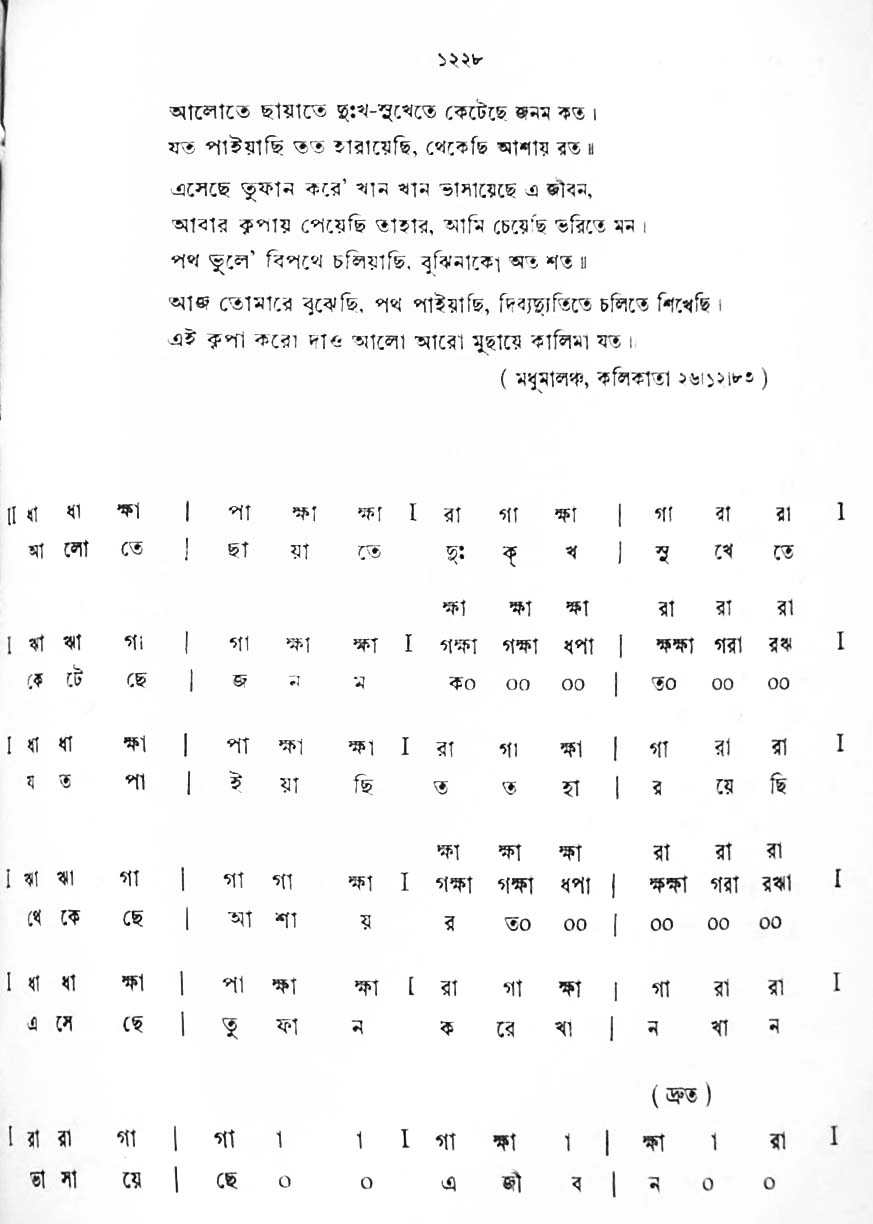 ১২২৮
আলোতে ছায়াতে দুঃখ-সুখেতে কেটেছে জনম কত।
যত পাইয়াছি তত হারায়েছি, থেকেছি আশায় রত॥
এসেছে তুফান করে' খান খান ভাসায়েছে এ জীবন,
আবার কৃপায় পেয়েছি তাহার, আমি চেয়েছি ভরিতে মন।
পথ ভুলে' বিপথে চলিয়াছি, বুঝিনাকো অত শত॥
আজ তোমারে বুঝেছি, পথ পাইয়াছি, দিব্যদ্যুতিতে চলিতে শিখেছি।
এই কৃপা করো দাও আলো আরো মুছায়ে কালিমা যত।
( মধুমালঞ্চ, কলিকাতা ২৬।১২।৮৩ )
II ধা ধা ক্ষা | পা ক্ষা ক্ষা I রা গা ক্ষা | গা রা রা I
আ লো তে | ছা য়া তে দুঃ ক্ খ | সু খে তে
ক্ষা ক্ষা ক্ষা রা রা রা
I ঝা ঝা গা | গা ক্ষা ক্ষা I গক্ষা গক্ষা ধপা | ক্ষক্ষা গরা রঝ I
কে টে ছে | জ ন ম ক০ ০০ ০০ | ত০ ০০ ০০
I ধা ধা ক্ষা | পা ক্ষা ক্ষা I রা গা ক্ষা | গা রা রা I
য ত পা | ই য়া ছি ত ত হা | র য়ে ছি
ক্ষা ক্ষা ক্ষা রা রা রা
I ঝা ঝা গা | গা গা ক্ষা I গক্ষা গক্ষা ধপা | ক্ষক্ষা গরা রঝা I
থে কে ছে | আ শা য় র ত০ ০০ | ০০ ০০ ০০
I ধা ধা ক্ষা | পা ক্ষা ক্ষা [ রা গা ক্ষা | গা রা রা I
এ সে ছে | তু ফা ন ক রে খা | ন খা ন
( দ্রুত )
I রা রা গা | গা া া I গা ক্ষা া | ক্ষা া রা I
ভা সা য়ে | ছে ০ ০ এ জী ব | ন ০ ০